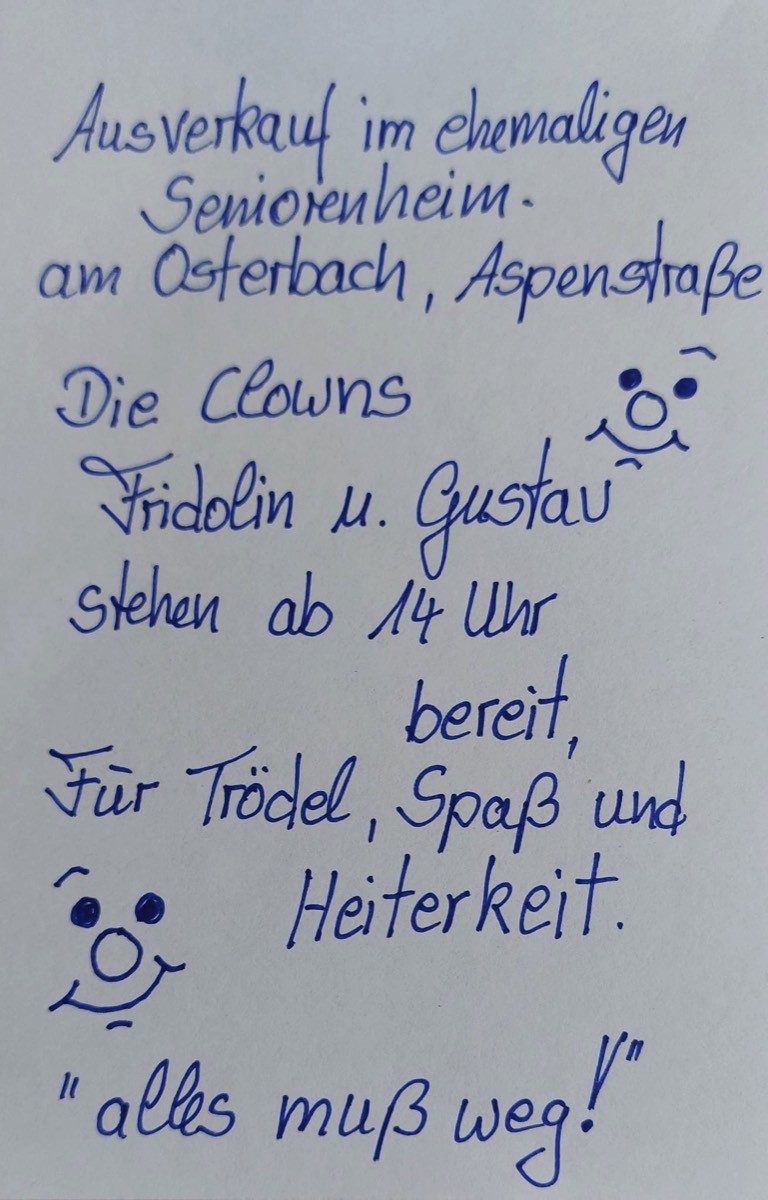 Ausverkauf im ehemaligen
Seniorenheim.
am Osterbach, Aspenstraße
Die Clowns
Fridolin u. Gustav
stehen ab 14 Uhr
bereit,
Für Trödel, Spaß und
Heiterkeit.
"alles muß weg!"